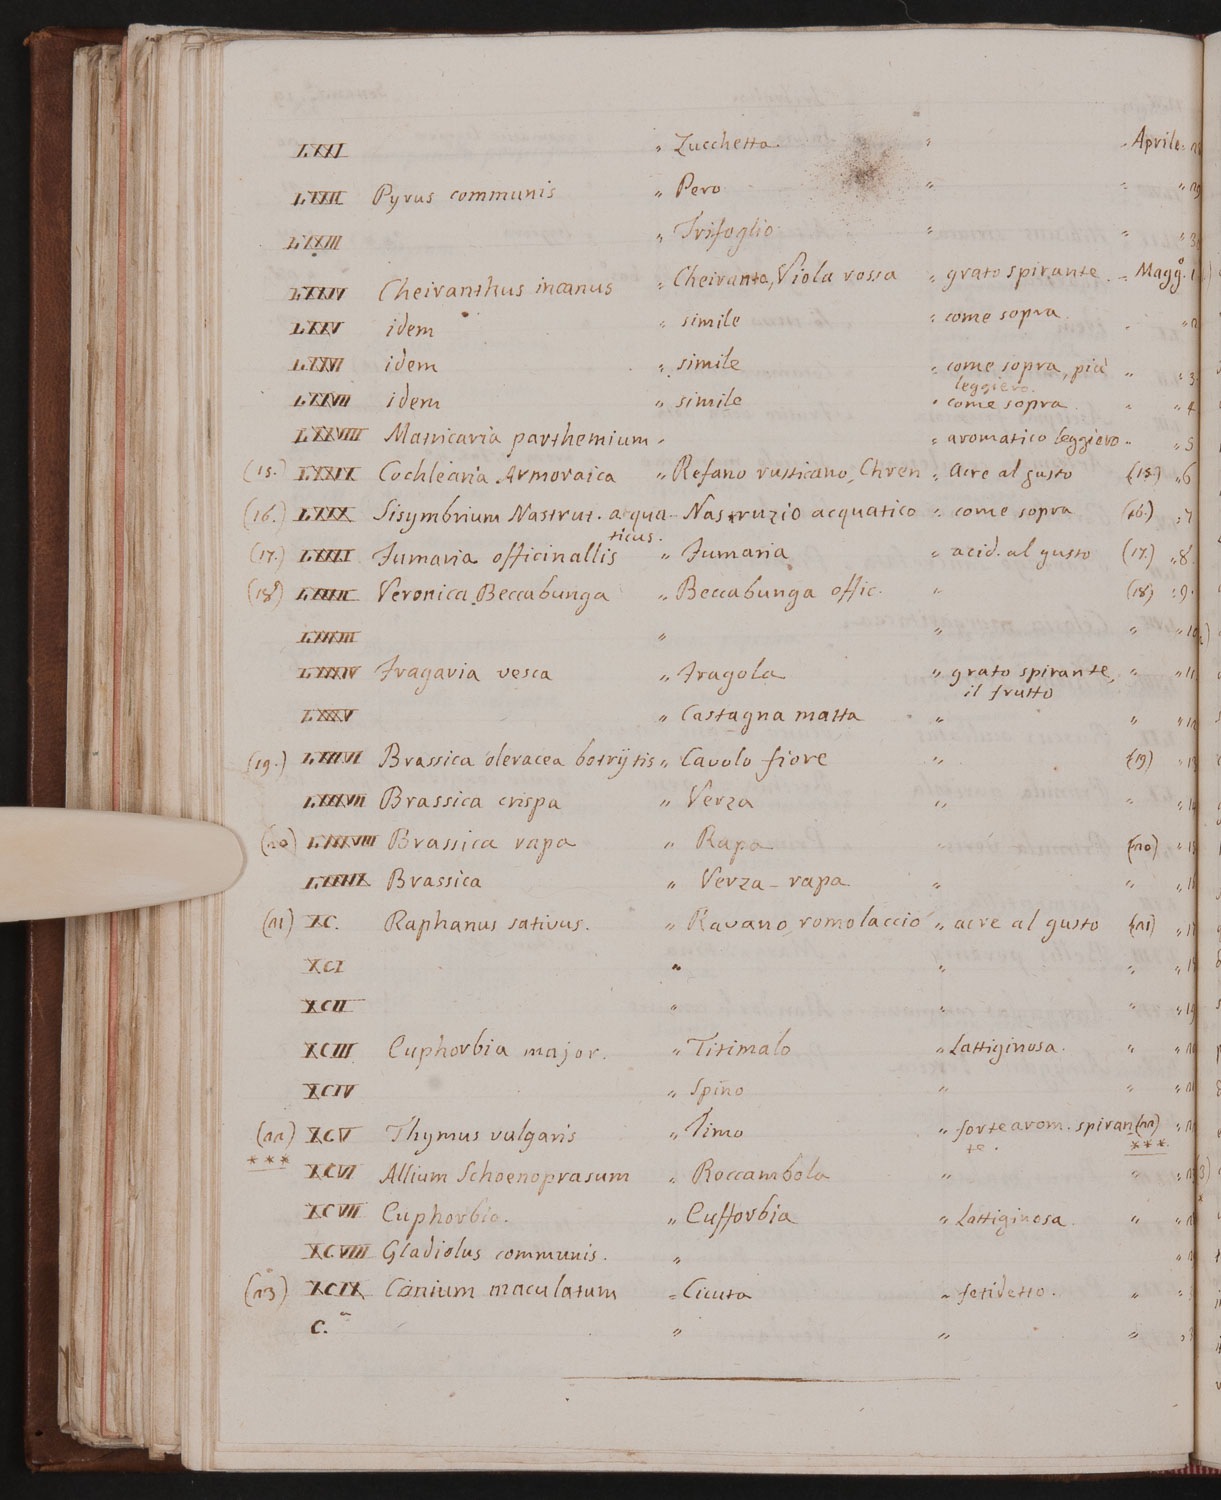 LXXI " Zucchetta. " - Aprile.
LXXII Pyrus communis " Pero " " "
LXXIII " Trifoglio " " "
LXXIV Cheiranthus incanus " Cheiranto, Viola rossa " grato spirante. - Maggº. 1
LXXV idem " simile " come sopra. " " 2
LXXVI idem " simile " come sopra, più " " 3
leggiero.
LXXVII idem " simile " come sopra " " 4
LXXVIII Matricaria parthemium " " aromatico leggiero " " 5
(15.) LXXIX Cochlearia Armoraica " Refano rusticano, Chren " acre al gusto (15.) " 6
(16.) LXXX Sisymbrium Nastrut. aqua- Nastruzio acquatico " come sopra (16.) " 7
ticus.
(17.) LXXXI Fumaria officinallis " Fumaria " acid. al gusto (17.) " 8
(18) LXXXII Veronica Beccabunga " Beccabunga offic. " (18) " 9.
LXXXIII " " " " 10
LXXXIV Fragaria vesca " Fragola " grato spirante, " " 11
il frutto
LXXXV " Castagna matta " " " 12
(19.) LXXXVI Brassica oleracea botrijtis " Cavolo fiore " (19) " 13
LXXXVII Brassica crispa " Verza " " " 14
(20) LXXXVIII Brassica rapa " Rapa " (20) " 15
LXXXIX Brassica " Verza-rapa " " " 16
(21) XC. Raphanus sativus. " Ravano, romolaccio " acre al gusto (21) " 17
XCI " " " " 18
XCII " " " " 19
XCIII Euphorbia major. " Titimalo " Lattiginosa. " " 20
XCIV " Spino " " " 21
(22) XCV Thymus vulgaris " Timo " forte arom. spiran (22) "
*** te. ***
XCVI Allium Schoenoprasum " Roccambola " " "
XCVII Euphorbia. " Eufforbia " Lattiginosa. " "
XCVIII Gladiolus communis. " "
(23) XCIX Conium maculatum " Cicuta " fetidetto. " "
C. " " " "